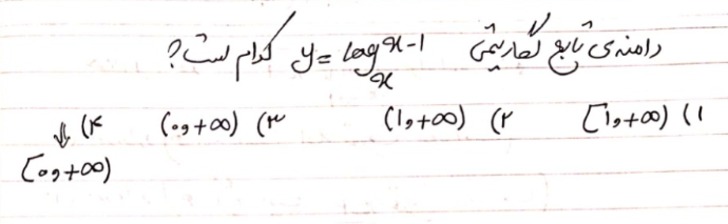 دامنه‌ی تابع لگاریتمی y = log_x^{x-1} کدام است؟
۱) [1,+∞) ۲) (1,+∞) ۳) (0,+∞) ۴) ↓
[0,+∞)